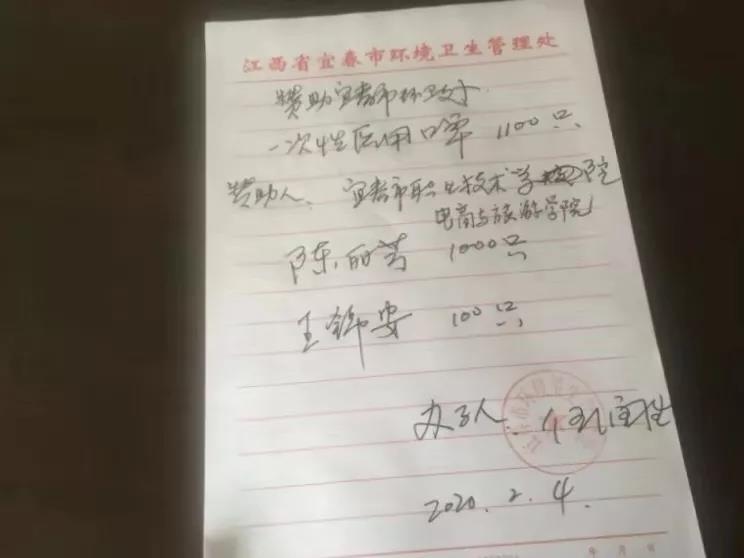 江西省宜春市环境卫生管理处
赞助宜春市环卫处
一次性医用口罩 1100只
赞助人、宜春市职业技术学院
电商与旅游学院
陈丽芳 1000只
王锦安 100只
办事人
2020.2.4.
年 月 日